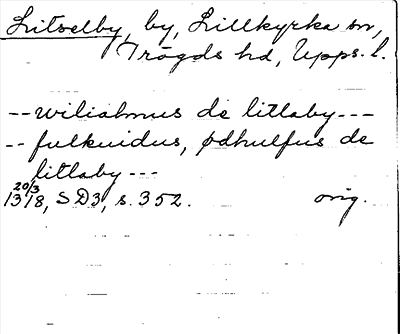 Litselby, by, Lillkyrka sn,
Trögds hd, Upps. l.
-- wiliahmus de litlaby ---
-- fulkuidus, ødhulfus de
litlaby ---
20/3
1318, SD3, s. 352. orig.